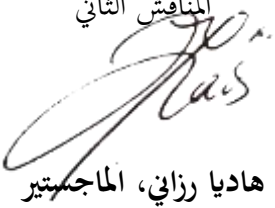 المناقش الثاني
هاديا رزاني، الماجستير